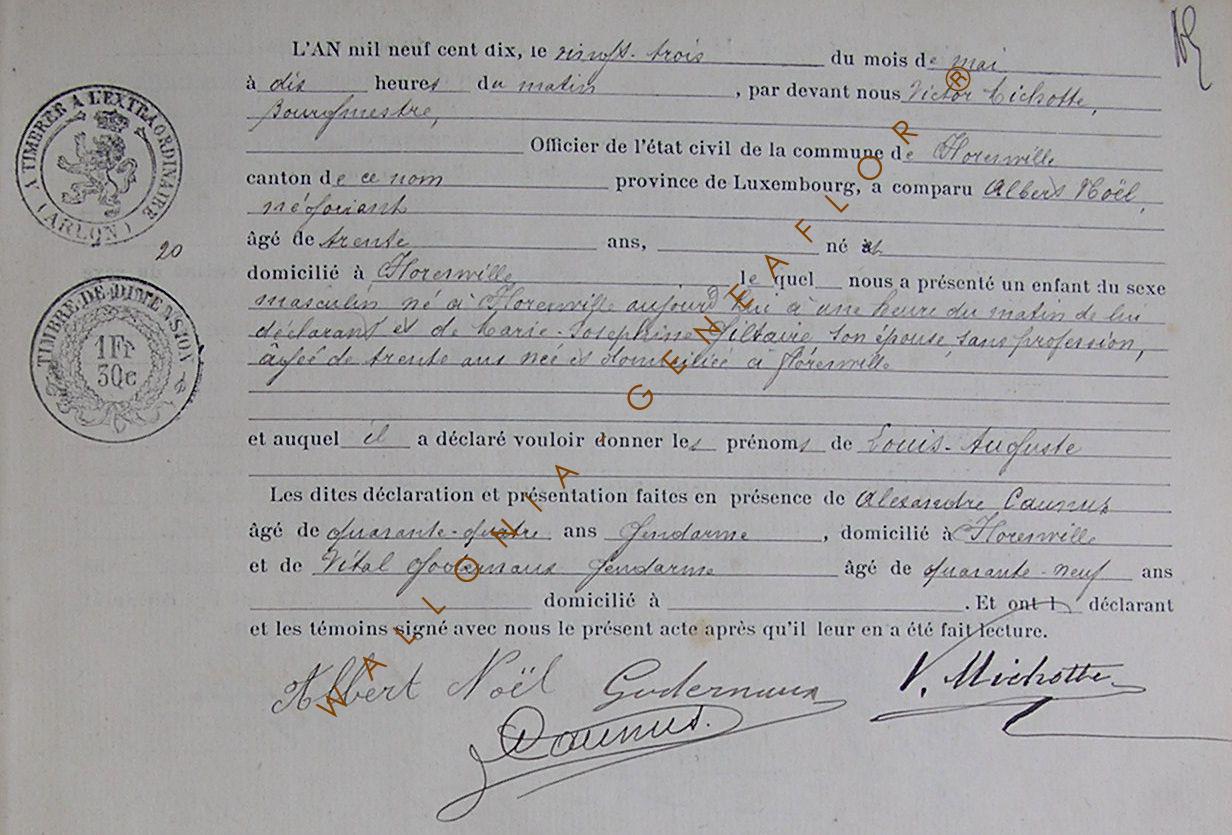 L'AN mil neuf cent dix, le vingt-trois du mois de mai
à dix heures du matin, par devant nous Victor Michotte,
Bourgmestre,
Officier de l'état civil de la commune de Florenville
canton de ce nom province de Luxembourg, a comparu Albert Noël,
négociant
âgé de trente ans, né et
domicilié à Florenville lequel nous a présenté un enfant du sexe
masculin né à Florenville aujourd'hui à une heure du matin de lui
déclarant et de Marie-Josephine Piltaire son épouse, sans profession,
âgée de trente ans née et domiciliée à Florenville
et auquel il a déclaré vouloir donner les prénoms de Louis-Auguste
Les dites déclaration et présentation faites en présence de Alexandre Caunus
âgé de quarante-quatre ans gendarme, domicilié à Florenville
et de Vital Godernaux gendarme âgé de quarante-neuf ans
domicilié à . Et ont l déclarant
et les témoins signé avec nous le présent acte après qu'il leur en a été fait lecture.
Albert Noël Godernaux V. Michotte
Caunus.
A TIMBRER A L'EXTRAORDINAIRE
(ARLON)
20
TIMBRE-DE-DIMENSION
1Fr
30c
WALLONIA GENEAFLOR ®